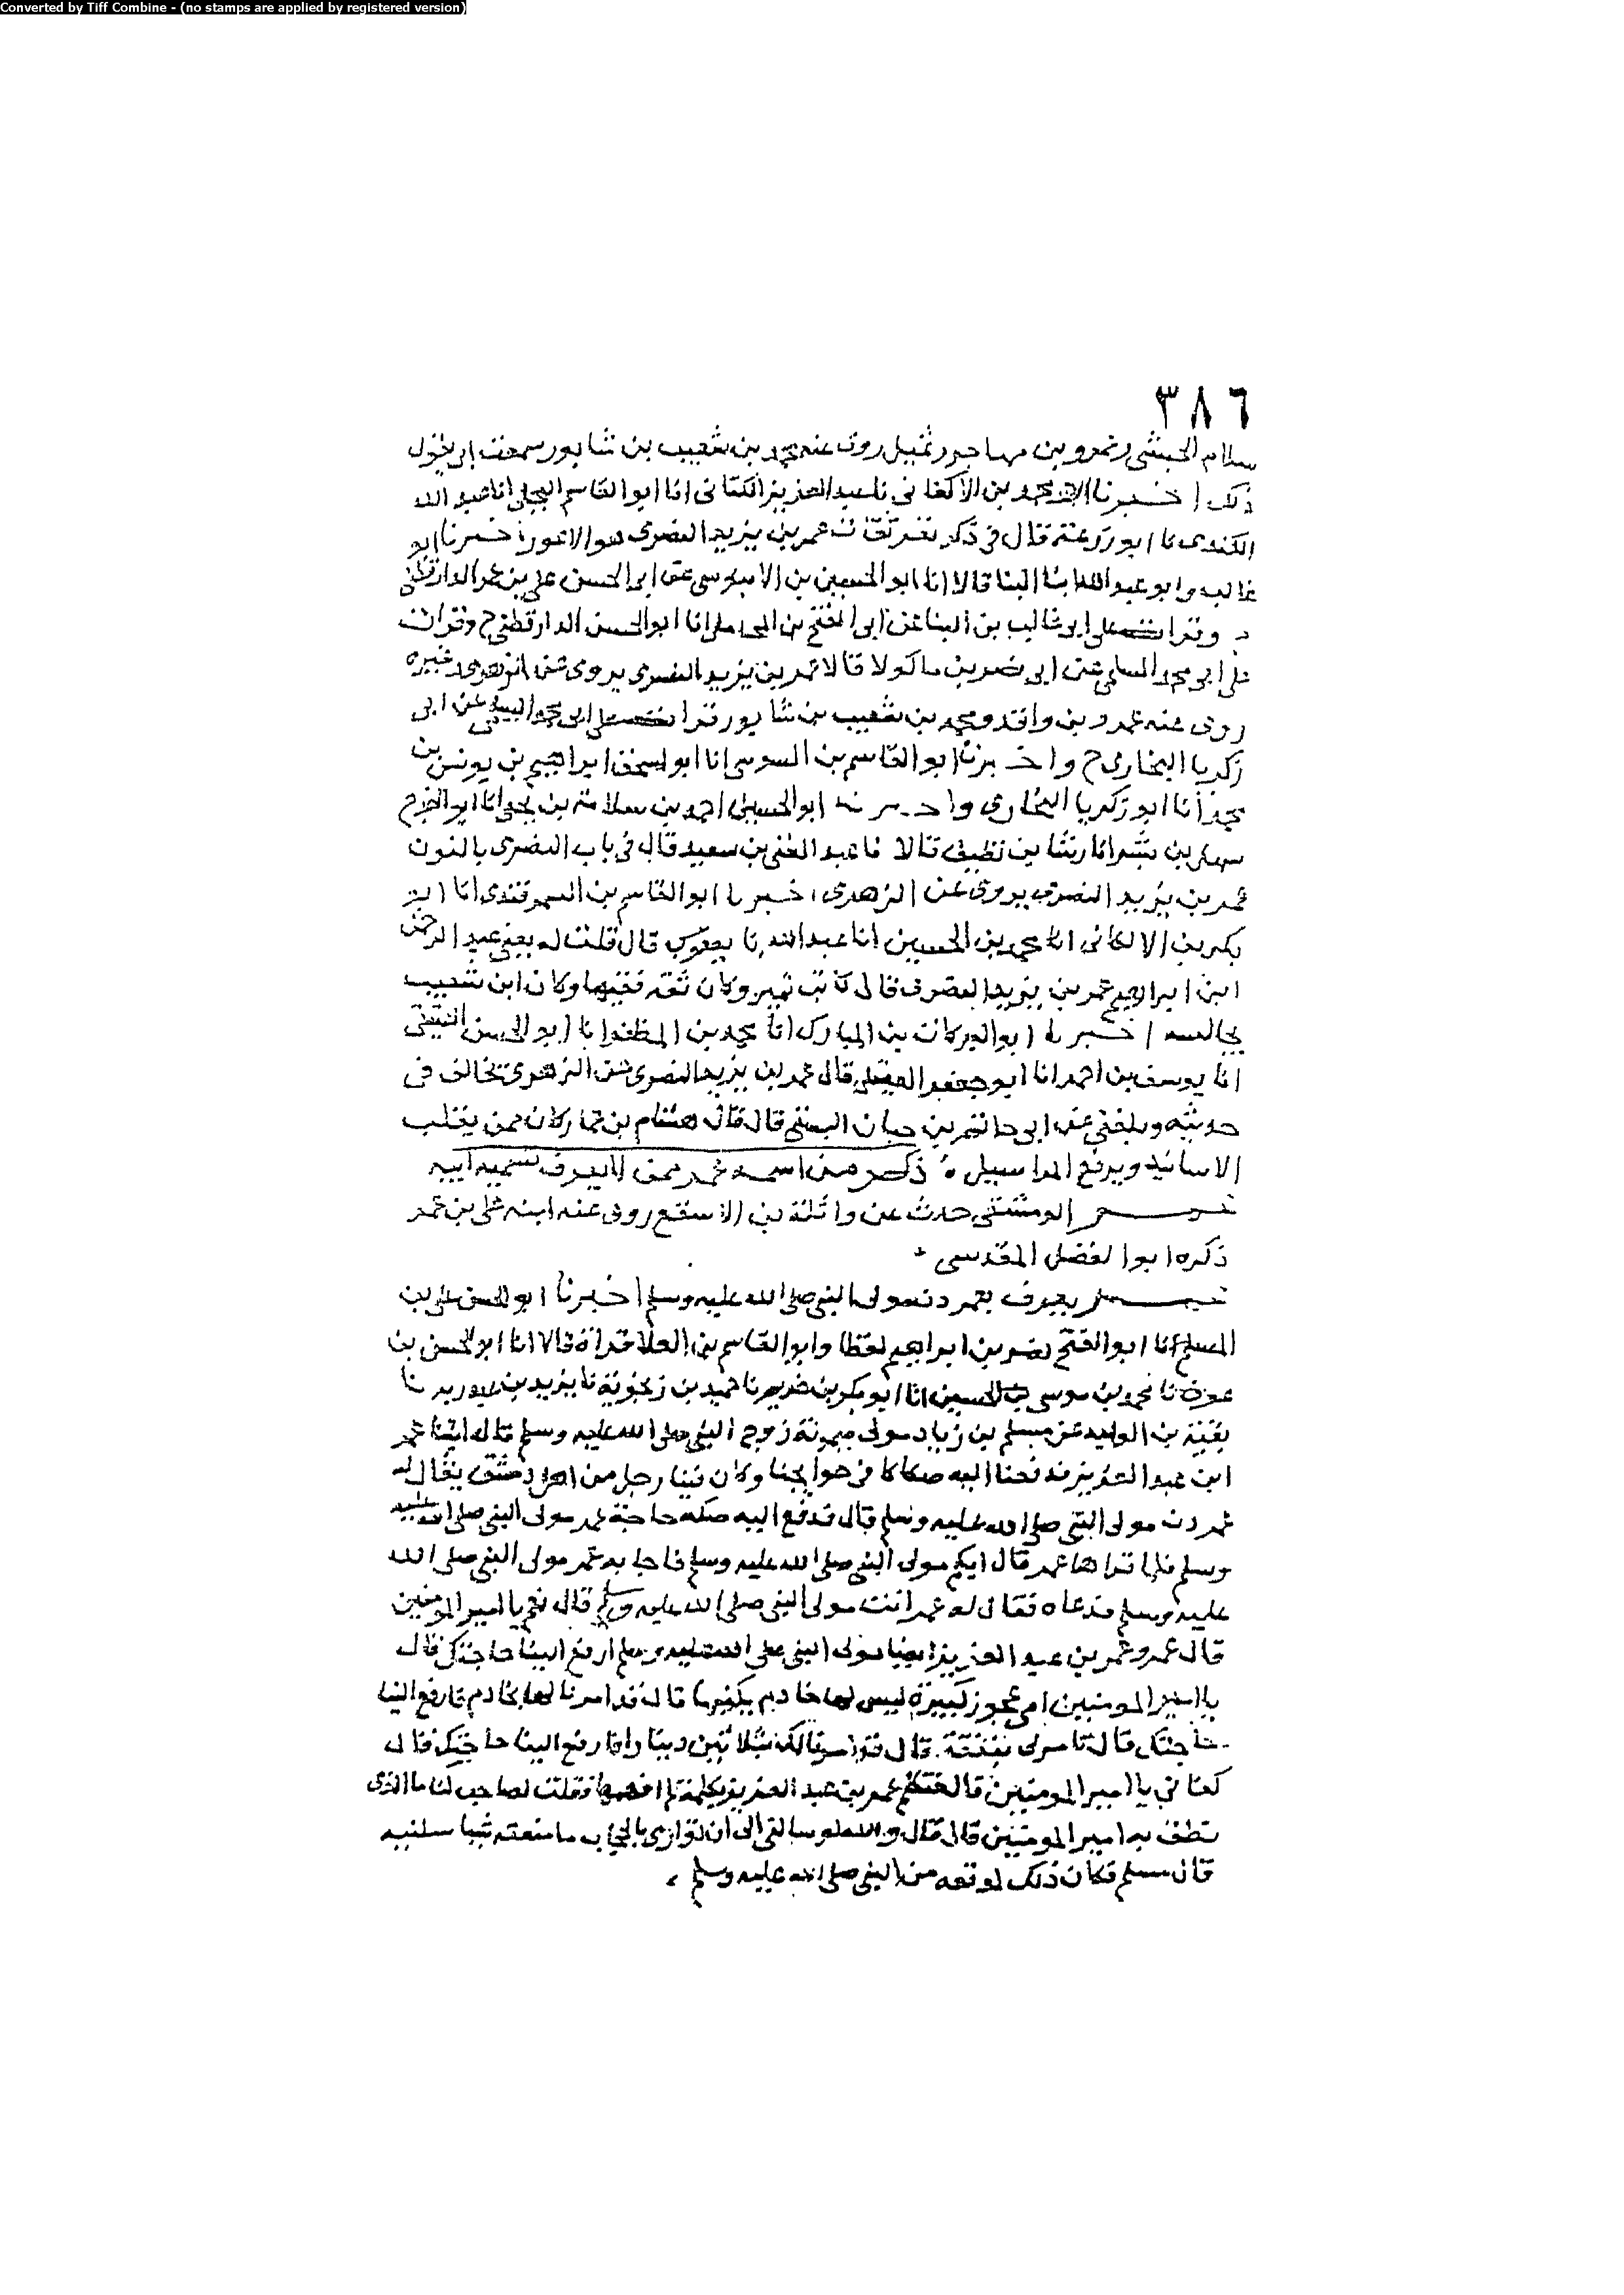 Converted by Tiff Combine - (no stamps are applied by registered version)
٣٨٦
سلام الحبشي وعمرو بن مهاجر روى عنه محمد بن شعيب بن شابور سمعت ابي يقول
ذلك اخبرنا محمد بن الاكفاني نا عبد العزيز الكتاني انا ابو القاسم البجلي انا عبد الله
الكندي نا ابو زرعة قال في ذكر نفر ثقات عمر بن يزيد النصري هو الاعور اخبرنا ابو
غالب وابو عبد الله ابنا البنا قالا انا ابو الحسين بن الابنوسي عن ابي الحسن علي بن عمر الدارقطني
وقرات على ابي غالب بن البنا عن ابي الفتح بن المحاملي انا ابو الحسن الدارقطني ح وقرات
على ابي محمد السلمي عن ابي نصر بن ماكولا قالا عمر بن يزيد النصري يروي عن الزهري وغيره
روى عنه عمرو بن واقد ومحمد بن شعيب بن شابور قرات على ابي محمد السلمي عن ابي
زكريا البخاري ح واخبرنا ابو القاسم بن السوسي انا ابو اسحق ابراهيم بن يونس بن
محمد انا ابو زكريا البخاري واخبرنا ابو الحسين احمد بن سلامة بن يحيى انا ابو الفرج
سهل بن بشر انا رشا بن نظيف قالا نا عبد الغني بن سعيد قال في باب النصري بالنون
عمر بن يزيد النصري يروي عن الزهري اخبرنا ابو القاسم بن السمرقندي انا ابو
بكر بن اللالكائي انا محمد بن الحسين انا عبد الله نا يعقوب قال قلت له يعني عبد الرحمن
ابن ابراهيم عمر بن يزيد النصري قال كاتب نمير وكان ثقة فقيها وكان ابن شعيب
يجالسه اخبرنا ابو البركات بن المبارك انا محمد بن المظفر انا ابو الحسن العتيقي
انا يوسف بن احمد انا ابو جعفر العقيلي قال عمر بن يزيد النصري عن الزهري يخالف في
حديثه وبلغني عن ابي حاتم بن حبان البستي قال قال هشام بن عمار كان ممن يقلب
الاسانيد ويرفع المراسيل ذكر من اسمه عمر ممن لا يعرف تسمية ابيه
عمر الدمشقي حدث عن واثلة بن الاسقع روى عنه ابنه علي بن عمر
ذكره ابو الفضل المقدسي
عمر يعرف بعمردن مولى النبي صلى الله عليه وسلم اخبرنا ابو الحسن علي بن
المسلم انا ابو الفتح نصر بن ابراهيم لفظا وابو القاسم بن العلا قراة قالا انا ابو الحسن بن
عوف نا محمد بن موسى بن الحسين انا ابو بكر بن خريم نا حميد بن زنجوية نا يزيد بن عبد ربه نا
بقية بن الوليد عن مسلم بن زياد مولى ميمونة زوج النبي صلى الله عليه وسلم قال اتينا عمر
ابن عبد العزيز فدفعنا اليه صكاكا في حوايجنا وكان فينا رجل من اهل دمشق يقال له
عمردن مولى النبي صلى الله عليه وسلم قال فدفع اليه صكه حاجة عمر مولى النبي صلى الله عليه
وسلم فلما قراها عمر قال ايكم مولى النبي صلى الله عليه وسلم فاجابه عمر مولى النبي صلى الله
عليه وسلم فدعاه فقال له عمر انت مولى النبي صلى الله عليه وسلم قال نعم يا امير المومنين
قال عمر وعمر بن عبد العزيز ايضا مولى النبي صلى الله عليه وسلم ارفع الينا حاجتك قال
يا امير المومنين امي عجوز كبيرة ليس لها خادم يكفيها قال قد امرنا لها بخادم فارفع الينا
حاجتك قال تامر لي بنفقة قال قد امرنا لك بثلاثين دينارا فارفع الينا حاجتك قال
كفاني يا امير المومنين قال فتكلم عمر بن عبد العزيز بكلمة لم افهمها فقلت لصاحب لنا ما الذي
نطق به امير المومنين قال قال والله لو سالني الى ان توارى بالحجاب ما منعته شيا سالنيه
قال مسلم فكان ذلك لموقعه من النبي صلى الله عليه وسلم